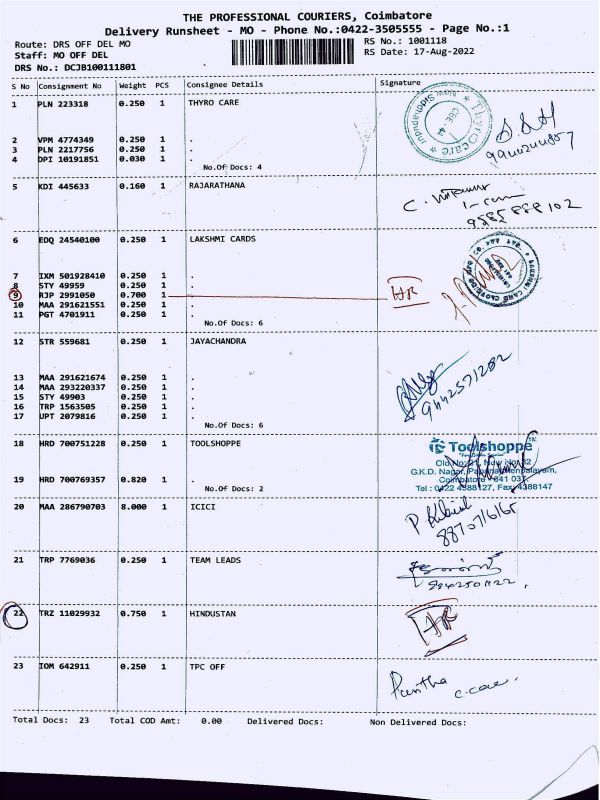 THE PROFESSIONAL COURIERS, Coimbatore
Delivery Runsheet - MO - Phone No.:0422-3505555 - Page No.:1
Route: DRS OFF DEL MO RS No.: 1001118
Staff: MO OFF DEL RS Date: 17-Aug-2022
DRS No.: DCJB100111801
S No Consignment No Weight PCS Consignee Details Signature
1 PLN 223318 0.250 1 THYRO CARE
Thyrocare
2 VPM 4774349 0.250 1 .
3 PLN 2217756 0.250 1 .
4 DPI 10191851 0.030 1 .
No.Of Docs: 4
5 KDI 445633 0.160 1 RAJARATHANA
9585888102
6 EDQ 24540100 0.250 1 LAKSHMI CARDS
7 IXM 501928410 0.250 1 .
8 STY 49959 0.250 1 .
9 RJP 2991050 0.700 1
10 MAA 291621551 0.250 1 .
11 PGT 4701911 0.250 1 .
No.Of Docs: 6
12 STR 559681 0.250 1 JAYACHANDRA
9442571282
13 MAA 291621674 0.250 1 .
14 MAA 293220337 0.250 1 .
15 STY 49903 0.250 1 .
16 TRP 1563505 0.250 1 .
17 UPT 2079816 0.250 1 .
No.Of Docs: 6
18 HRD 700751228 0.250 1 TOOLSHOPPE
Toolshoppe™
G.K.D. Nagar,
Tel : 0422 4388127, Fax: 4388147
19 HRD 700769357 0.820 1 .
No.Of Docs: 2
20 MAA 286790703 8.000 1 ICICI
21 TRP 7769036 0.250 1 TEAM LEADS
22 TRZ 11029932 0.750 1 HINDUSTAN
23 IOM 642911 0.250 1 TPC OFF
Total Docs: 23 Total COD Amt: 0.00 Delivered Docs: Non Delivered Docs: